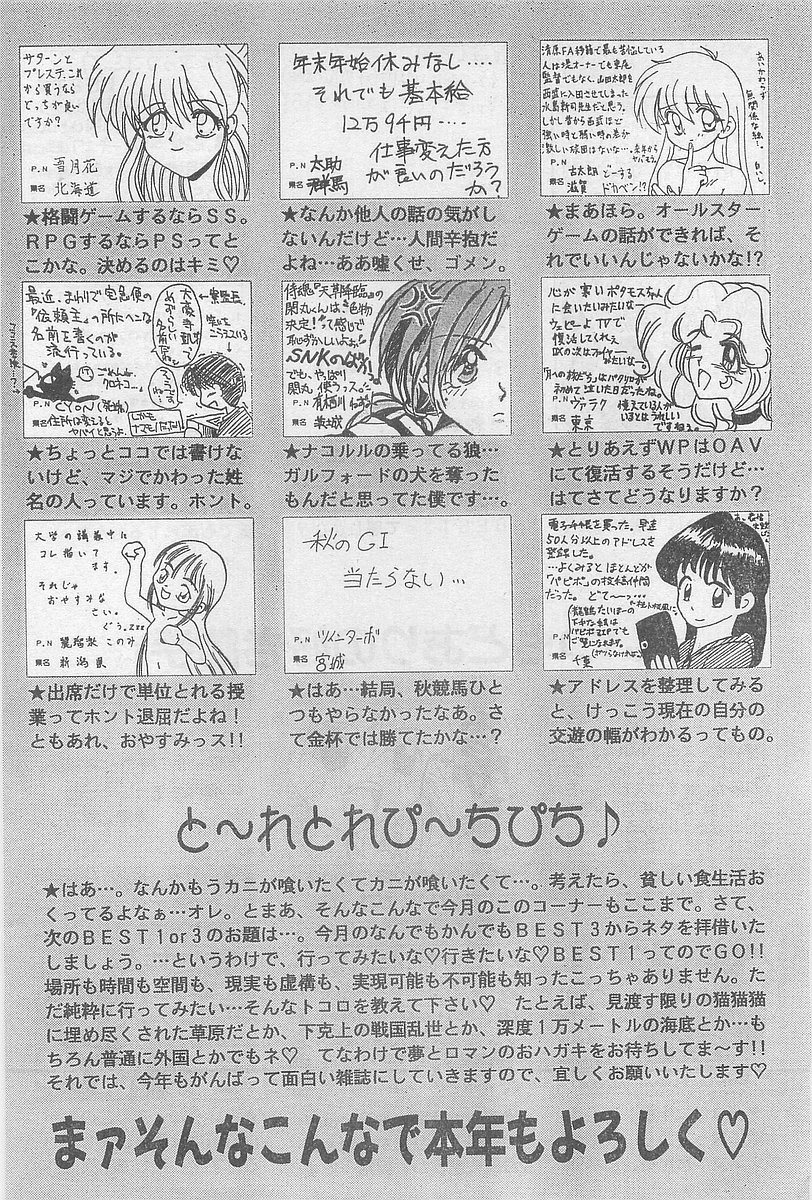 サターンと
プレステ、これ
から買うなら
どっちが良い
ですか?
P.N 雪月花
県名 北海道
★格闘ゲームするならSS。
RPGするならPSってと
こかな。決めるのはキミ♡
年末年始休みなし‥‥
それでも基本給
12万9千円‥‥
仕事変えた方
が良いのだろう
か?
P.N 太助
県名 群馬
★なんか他人の話の気がし
ないんだけど…人間辛抱だ
よね…ああ嘘くせ、ゴメン。
清原FA移籍で最も苦悩している
人は堤オーナーでも東尾
監督でもなく、山田太郎を
西武に入団させてしまった
水島新司先生だと思う。
しかし昔から西武ほど
強い時と弱い時の差が
激しい球団はないな…。
あいかわらず
無関係な絵…。
P.N 古太朗
県名 滋賀
どーする
ドカベン!?
★まあほら。オールスター
ゲームの話ができれば、そ
れでいいんじゃないかな!?
最近、まわりで宅急便の
「依頼主」の所にヘンな
名前を書くのが
流行っている。
P.N CYON
県名 住所は変えると
ヤバイと思うよ。
★ちょっとココでは書けな
いけど、マジでかわった姓
名の人っています。ホント。
侍魂「天草降臨」の
閑丸くんは"色物
決定!"って感じで
恥ずかしいよぉ!
SNKのばか!
でも、やっぱり
閑丸 使うっス。
P.N 有栖川
県名 茨城
★ナコルルの乗ってる狼…
ガルフォードの犬を奪った
もんだと思ってた僕です…。
心が寒いポタモスちゃん
に会いたいみたいなー
ウェピーよTVで
復活してくれえ
P.N ヴァラク
県名 東京
憶えている人が
いるとうれしい
ですねぇ。
★とりあえずWPはOAV
にて復活するそうだけど…
はてさてどうなりますか?
大学の講義中に
コレ描いて
ます。
それじゃ
おやすみな
さい。
ぐぅ。Zzz
P.N 麗瑠梨 このみ
県名 新潟県
★出席だけで単位とれる授
業ってホント退屈だよね!
ともあれ、おやすみっス!!
秋のGI
当たらない…
P.N ツインターボ
県名 宮城
★はあ…結局、秋競馬ひと
つもやらなかったなあ。さ
て金杯では勝てたかな…?
電子手帳を買った。早速
50人分以上のアドレスを
登録した。
…よくみるとほとんどが
「パピポ」の投稿仲間
だった。どて〜っ…
県名 千葉
★アドレスを整理してみる
と、けっこう現在の自分の
交遊の幅がわかるってもの。
と〜れとれぴ〜ちぴち♪
★はあ…。なんかもうカニが喰いたくてカニが喰いたくて…。考えたら、貧しい食生活お
くってるよなぁ…オレ。とまあ、そんなこんなで今月のこのコーナーもここまで。さて、
次のBEST1or3のお題は…。今月のなんでもかんでもBEST3からネタを拝借いた
しましょう。…というわけで、行ってみたいな♡行きたいな♡BEST1ってのでGO!!
場所も時間も空間も、現実も虚構も、実現可能も不可能も知ったこっちゃありません。た
だ純粋に行ってみたい…そんなトコロを教えて下さい♡ たとえば、見渡す限りの猫猫猫
に埋め尽くされた草原だとか、下克上の戦国乱世とか、深度1万メートルの海底とか…も
ちろん普通に外国とかでもネ♡ てなわけで夢とロマンのおハガキをお待ちしてま〜す!!
それでは、今年もがんばって面白い雑誌にしていきますので、宜しくお願いいたします♡
まァそんなこんなで本年もよろしく♡